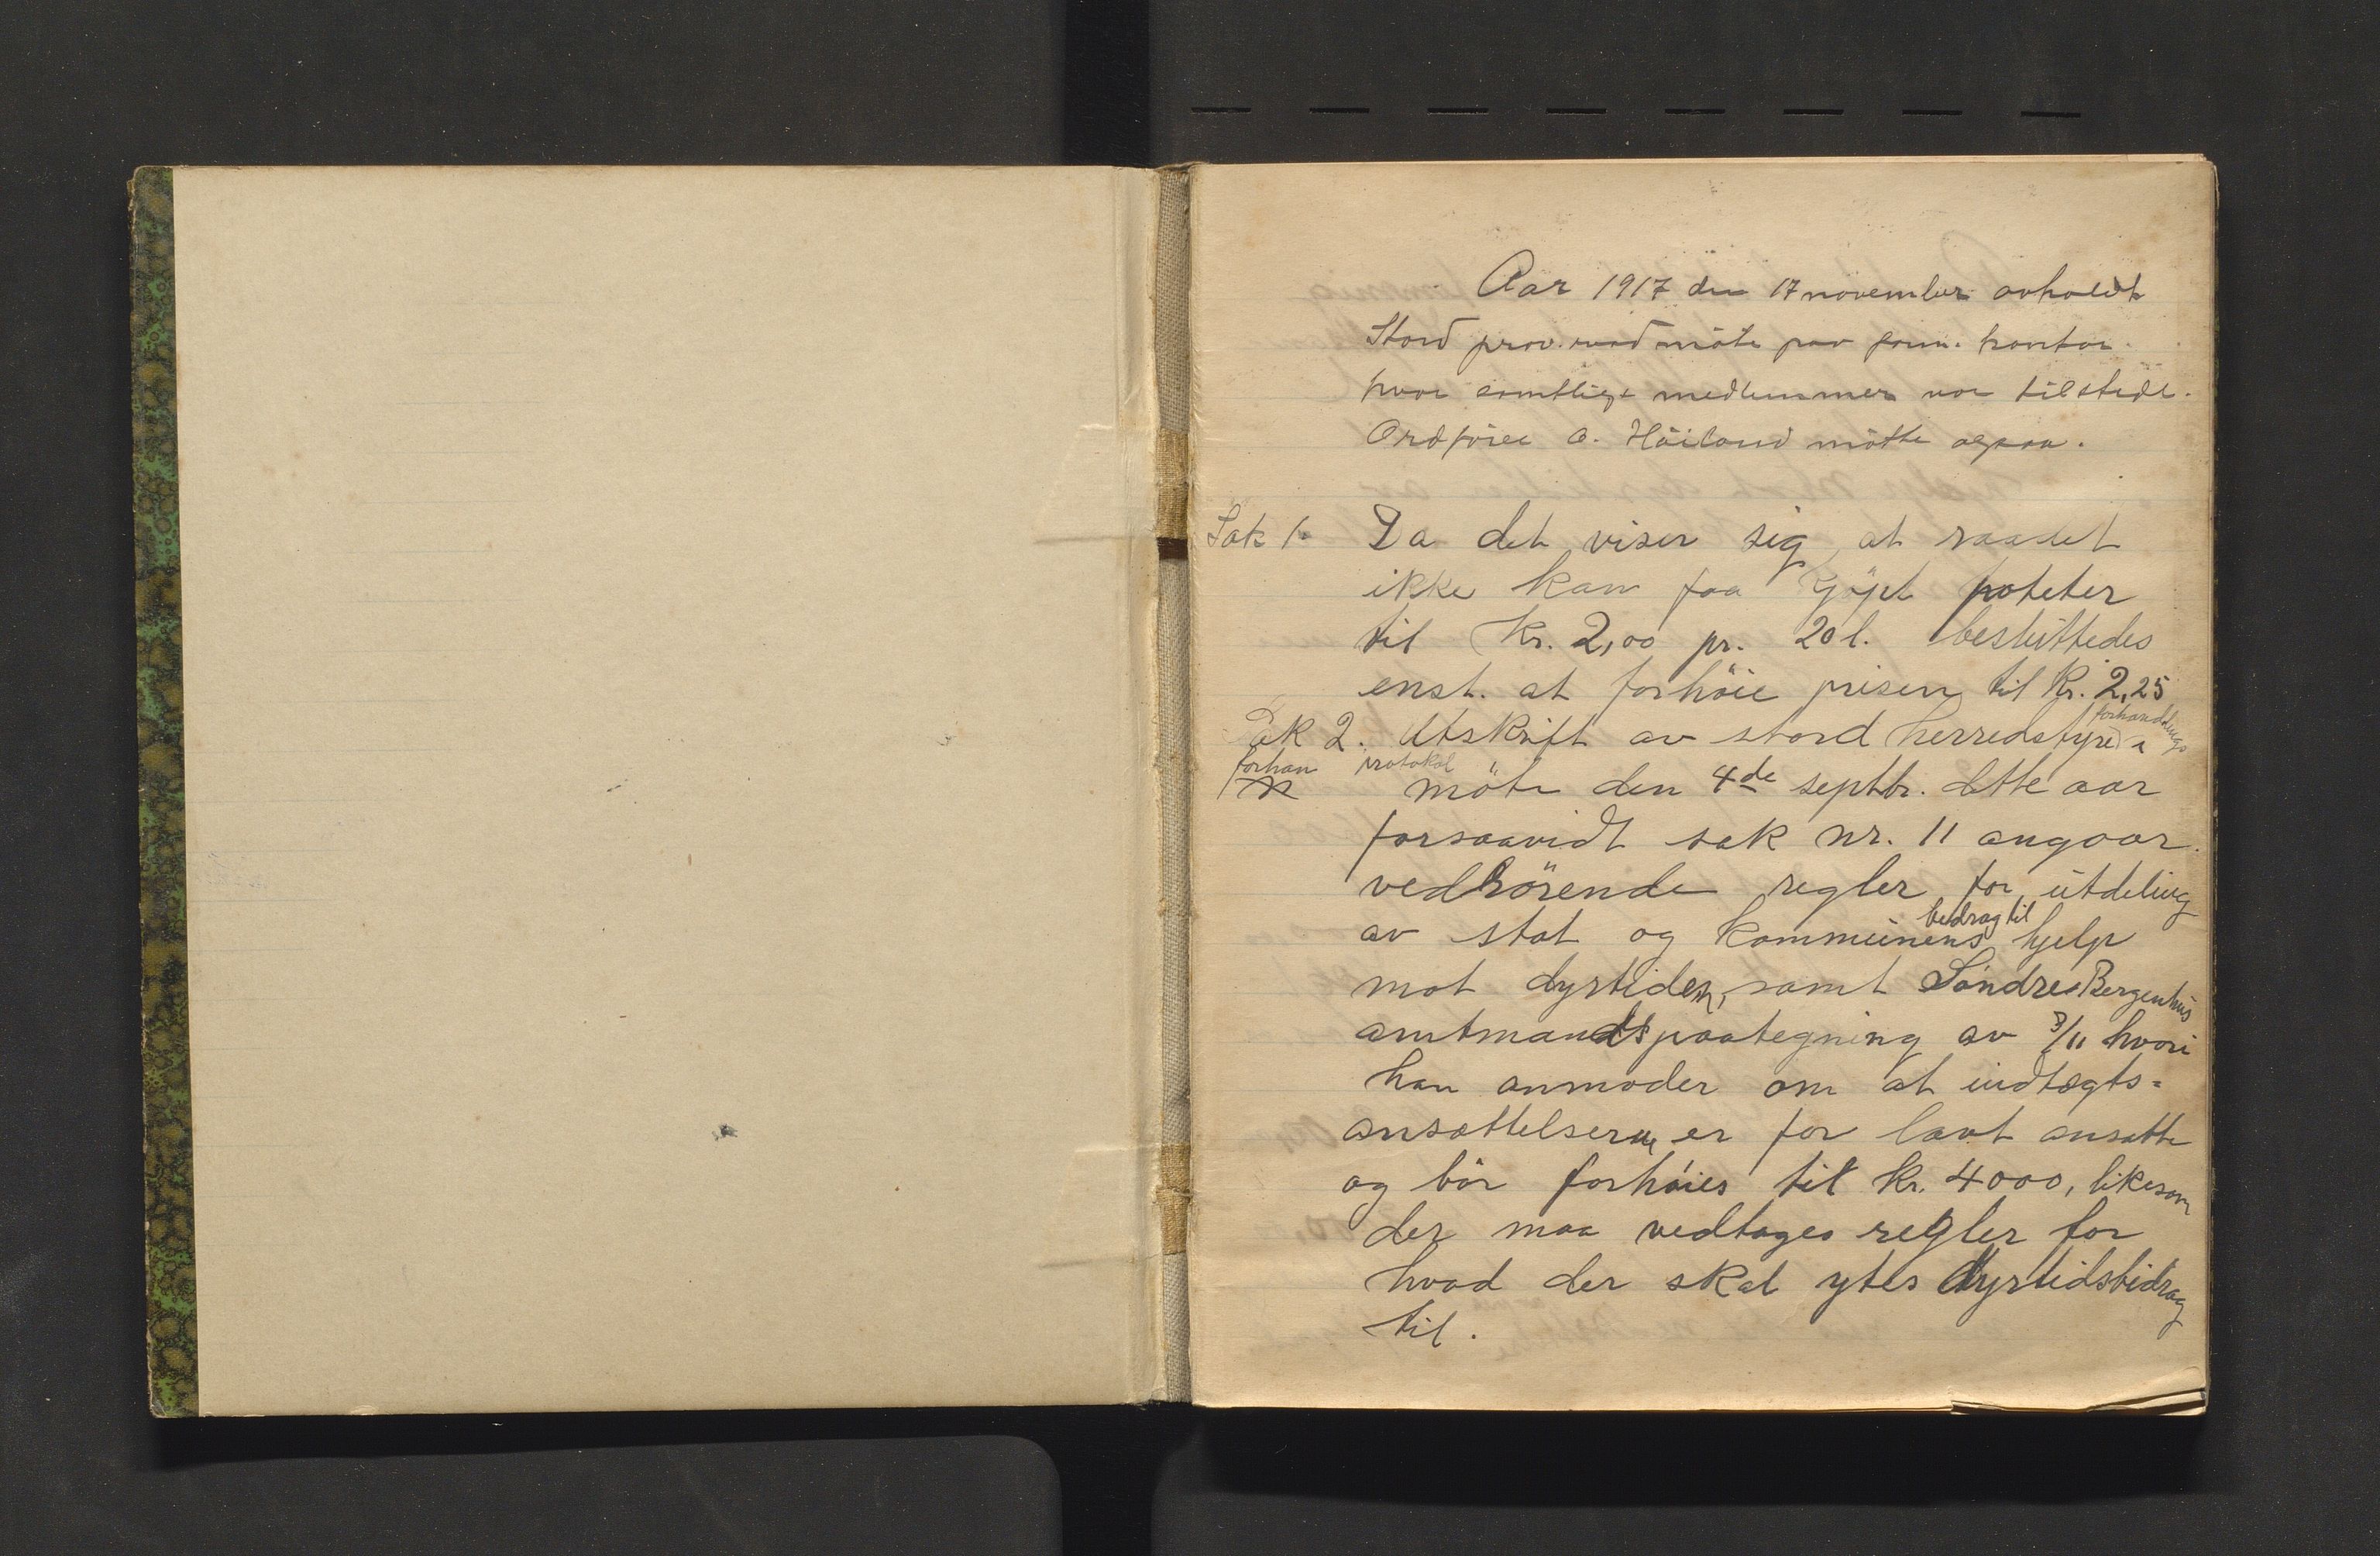 Aar 1917 den 17 november avholdt
Stord prov. raad møte paa form. kontor.
hvor samtlige medlemmer var tilstede.
Ordfører O. Høiland møtte ogsaa.
Sak 1. Da det viser sig, at raadet
ikke kan faa kjøpt poteter
til Kr. 2,00 pr. 20 l. besluttedes
enst. at forhöie prisen til Kr. 2,25
Sak 2. Utskrift av stord herredstyres forhandlings
protokol i
møte den 4de septbr. dette aar
forsaavidt sak nr. 11 angaar.
vedrörende regler for utdeling
av stat og kommunens bedrag til hjelp
mot dyrtiden, samt Söndre Bergenhus
amtmands paategning av 8/11 hvori
han anmoder om at indtægts-
ansættelserne er for lavt ansatte
og bör forhöies til kr. 4000, likesom
der maa vedtages regler for
hvad der skal ytes dyrtidsbidrag
til.